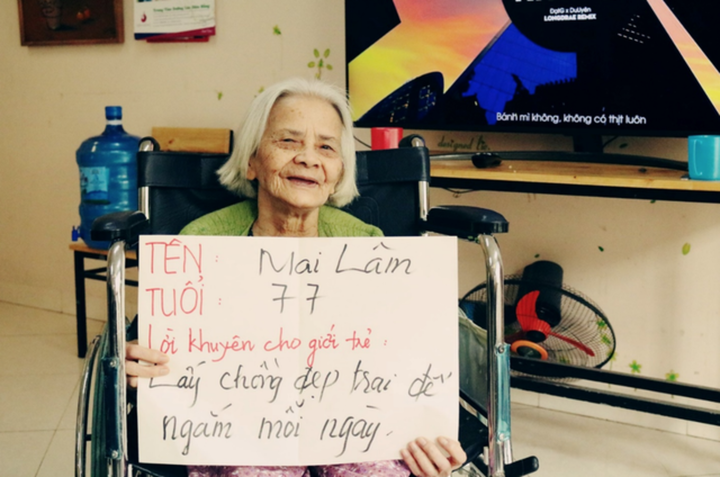 ĐạtG x DuUyên
LONGDRAE REMIX
Bánh mì không, không có thịt luôn
TÊN : Mai Lâm
TUỔI : 77
Lời khuyên cho giới trẻ :
Lấy chồng đẹp trai để
ngắm mỗi ngày.